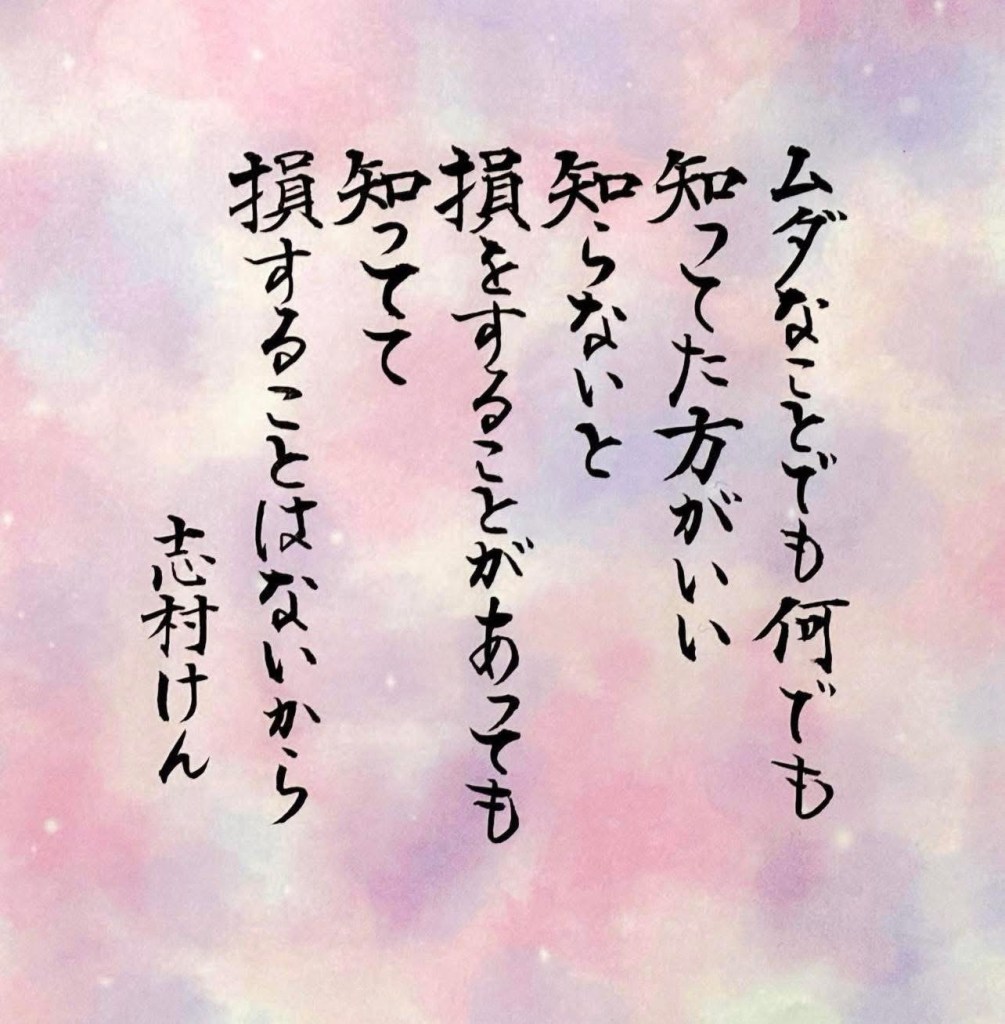 ムダなことでも何でも
知ってた方がいい
知らないと
損をすることがあっても
知ってて
損することはないから
志村けん